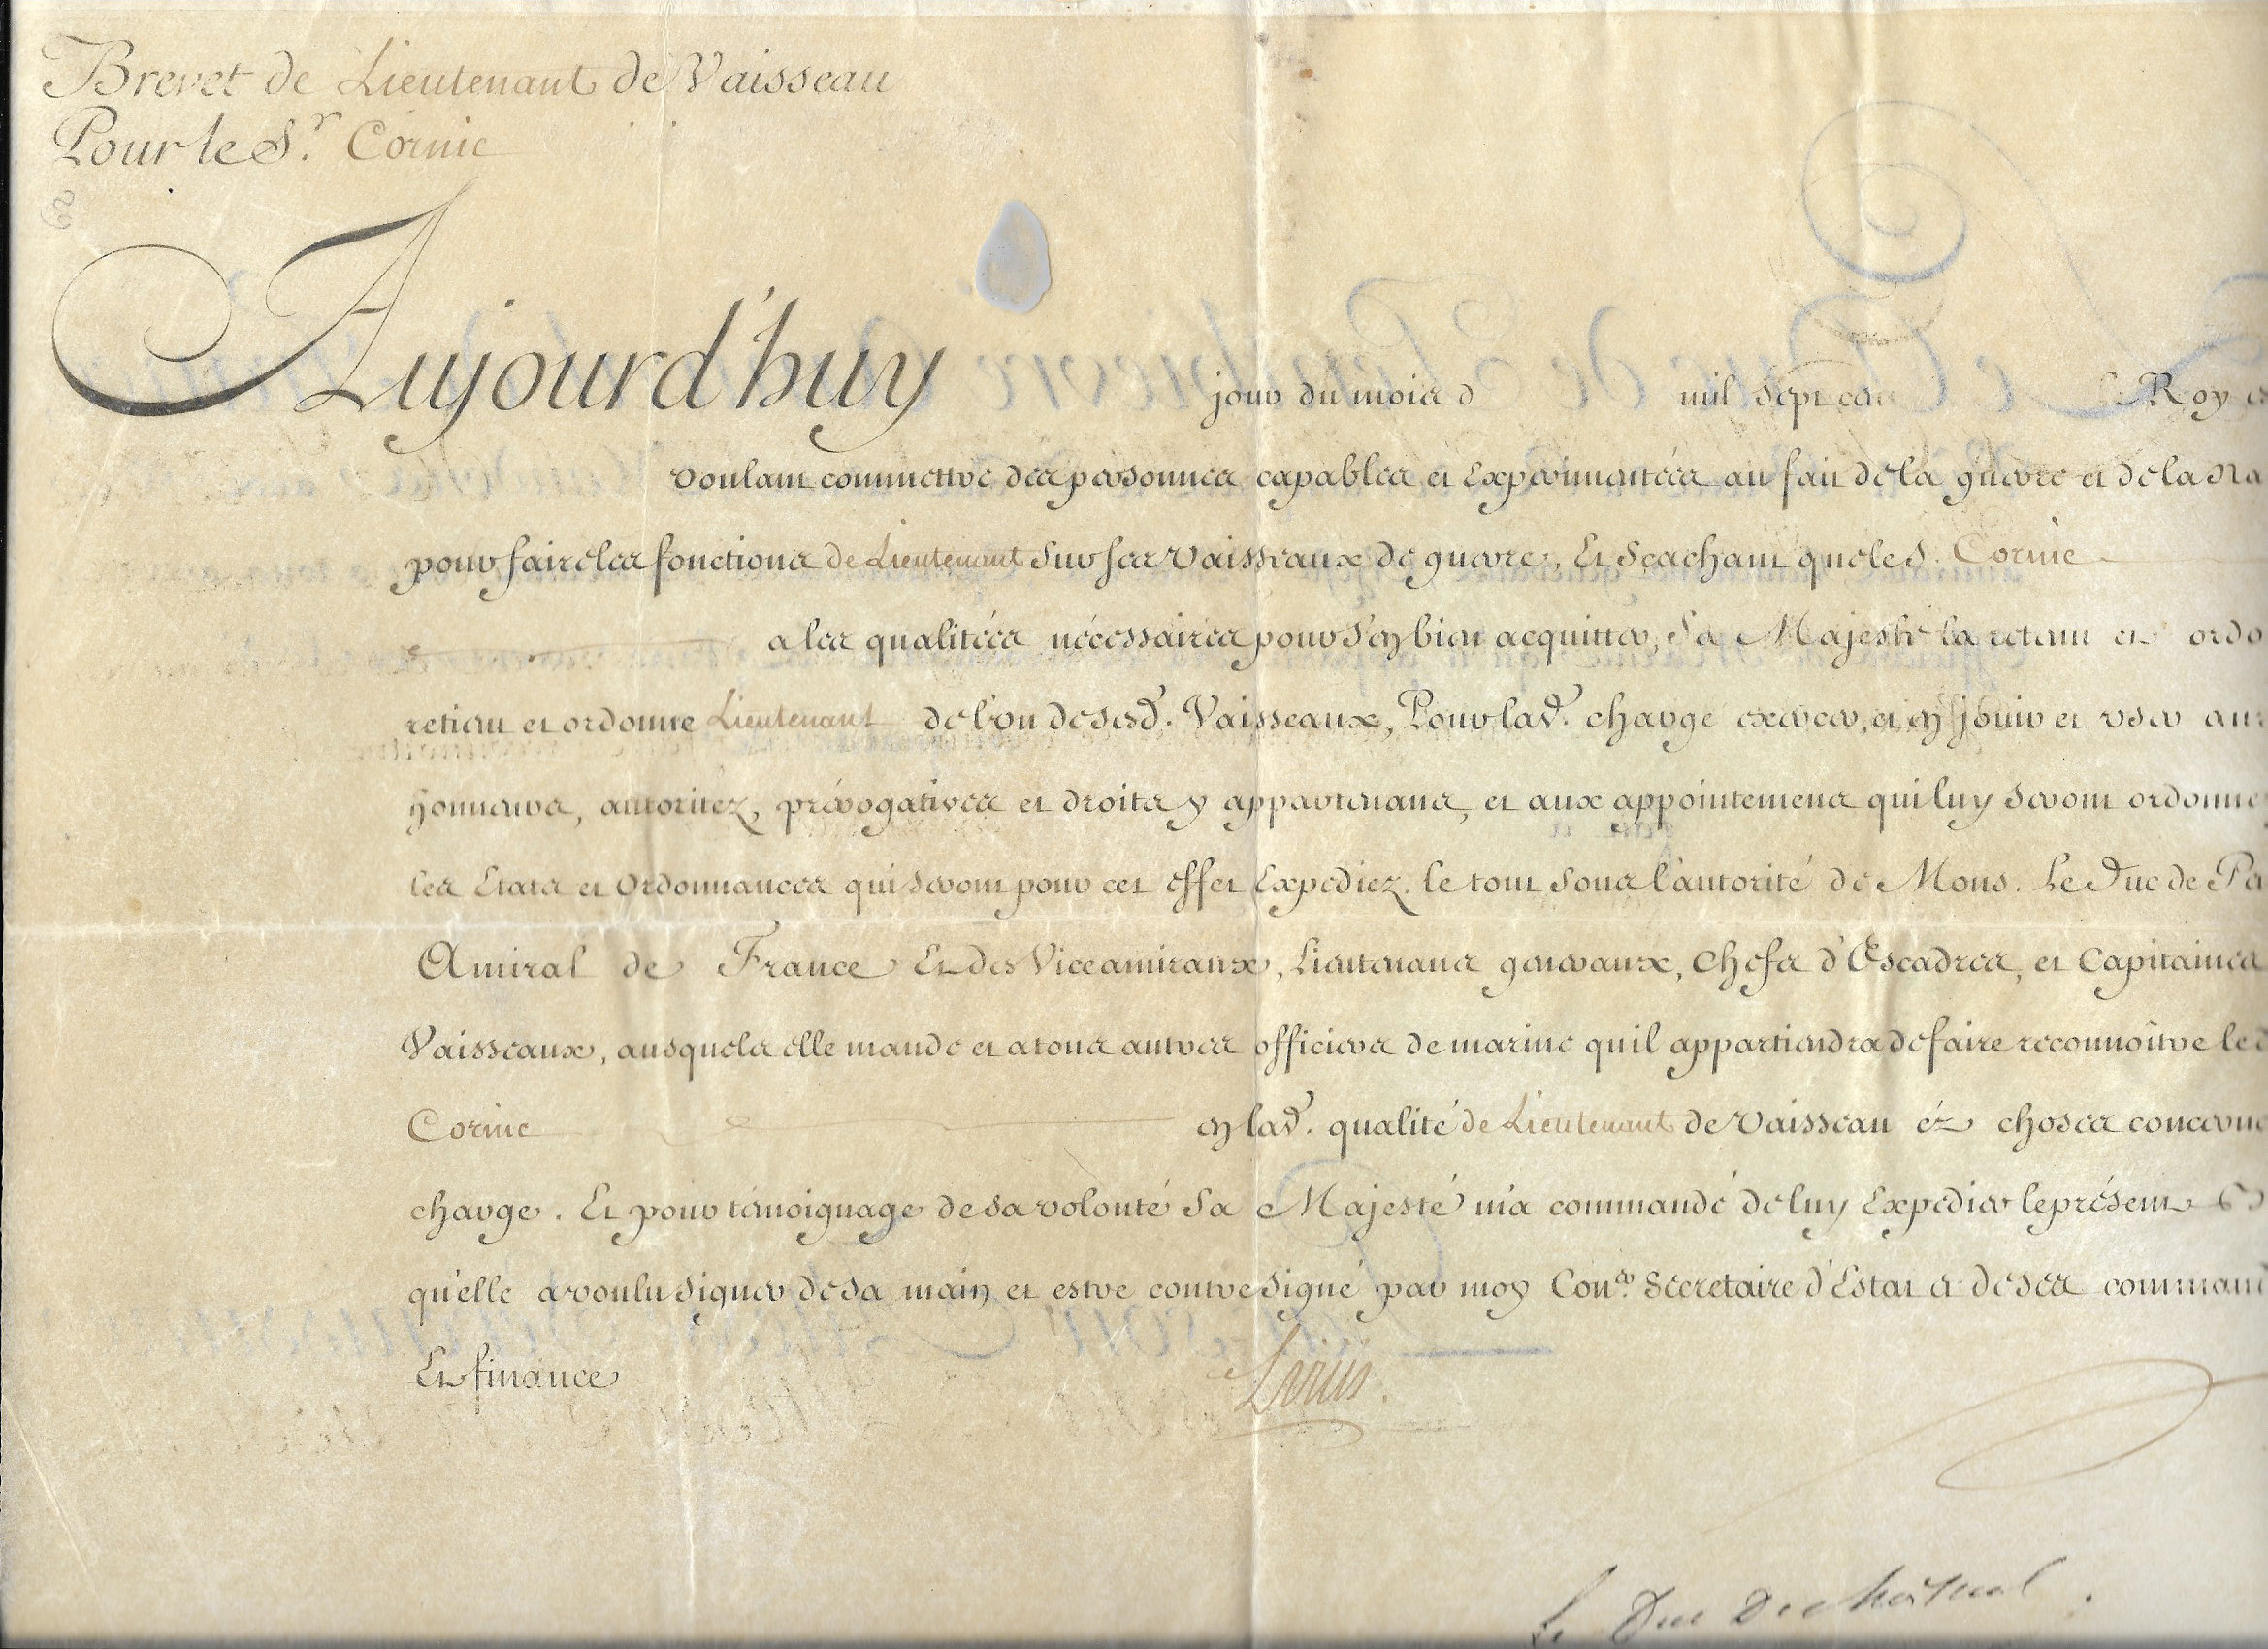 Brevet de Lieutenant de Vaisseau
Pour le S.r Cornic
62
Aujourd'huy jour du mois d mil sept cen le Roy es
voulant commettre des personnes capables et Experimentées au fait de la guerre et de la Na
pour faire les fonctions de Lieutenant sur ses Vaisseaux de guerre, Et Sçachant que le S. Cornic
a les qualitées nécessaires pour s'en bien acquitter, Sa Majesté la retenu et ordo
retient et ordonne Lieutenant de l'un de sesd. Vaisseaux, Pour lad. charge exercer, et en jouir et user aux
honneurs, autoritez, prérogatives et droits y appartenans, et aux appointemens qui luy seront ordonnez
les Etats et Ordonnances qui seront pour cet effet Expediez. le tout sous l'autorité de Mons. Le Duc de Pa
Amiral de France Et des Viceamiraux, Lieutenans generaux, Chefs d'Escadres, et Capitaines
Vaisseaux, ausquels elle mande et a tous autres officiers de marine qu'il appartiendra de faire reconnoître led
Cornic en lad. qualité de Lieutenant de Vaisseau éz choses concerna
charge. Et pour témoignage de sa volonté Sa Majesté m'a commandé de luy Expedier le présent
qu'elle a voulu signer de sa main et estre contresigné par moy Con.er Secretaire d'Estat et de ses command
Et finance
Louis.
Le Duc De